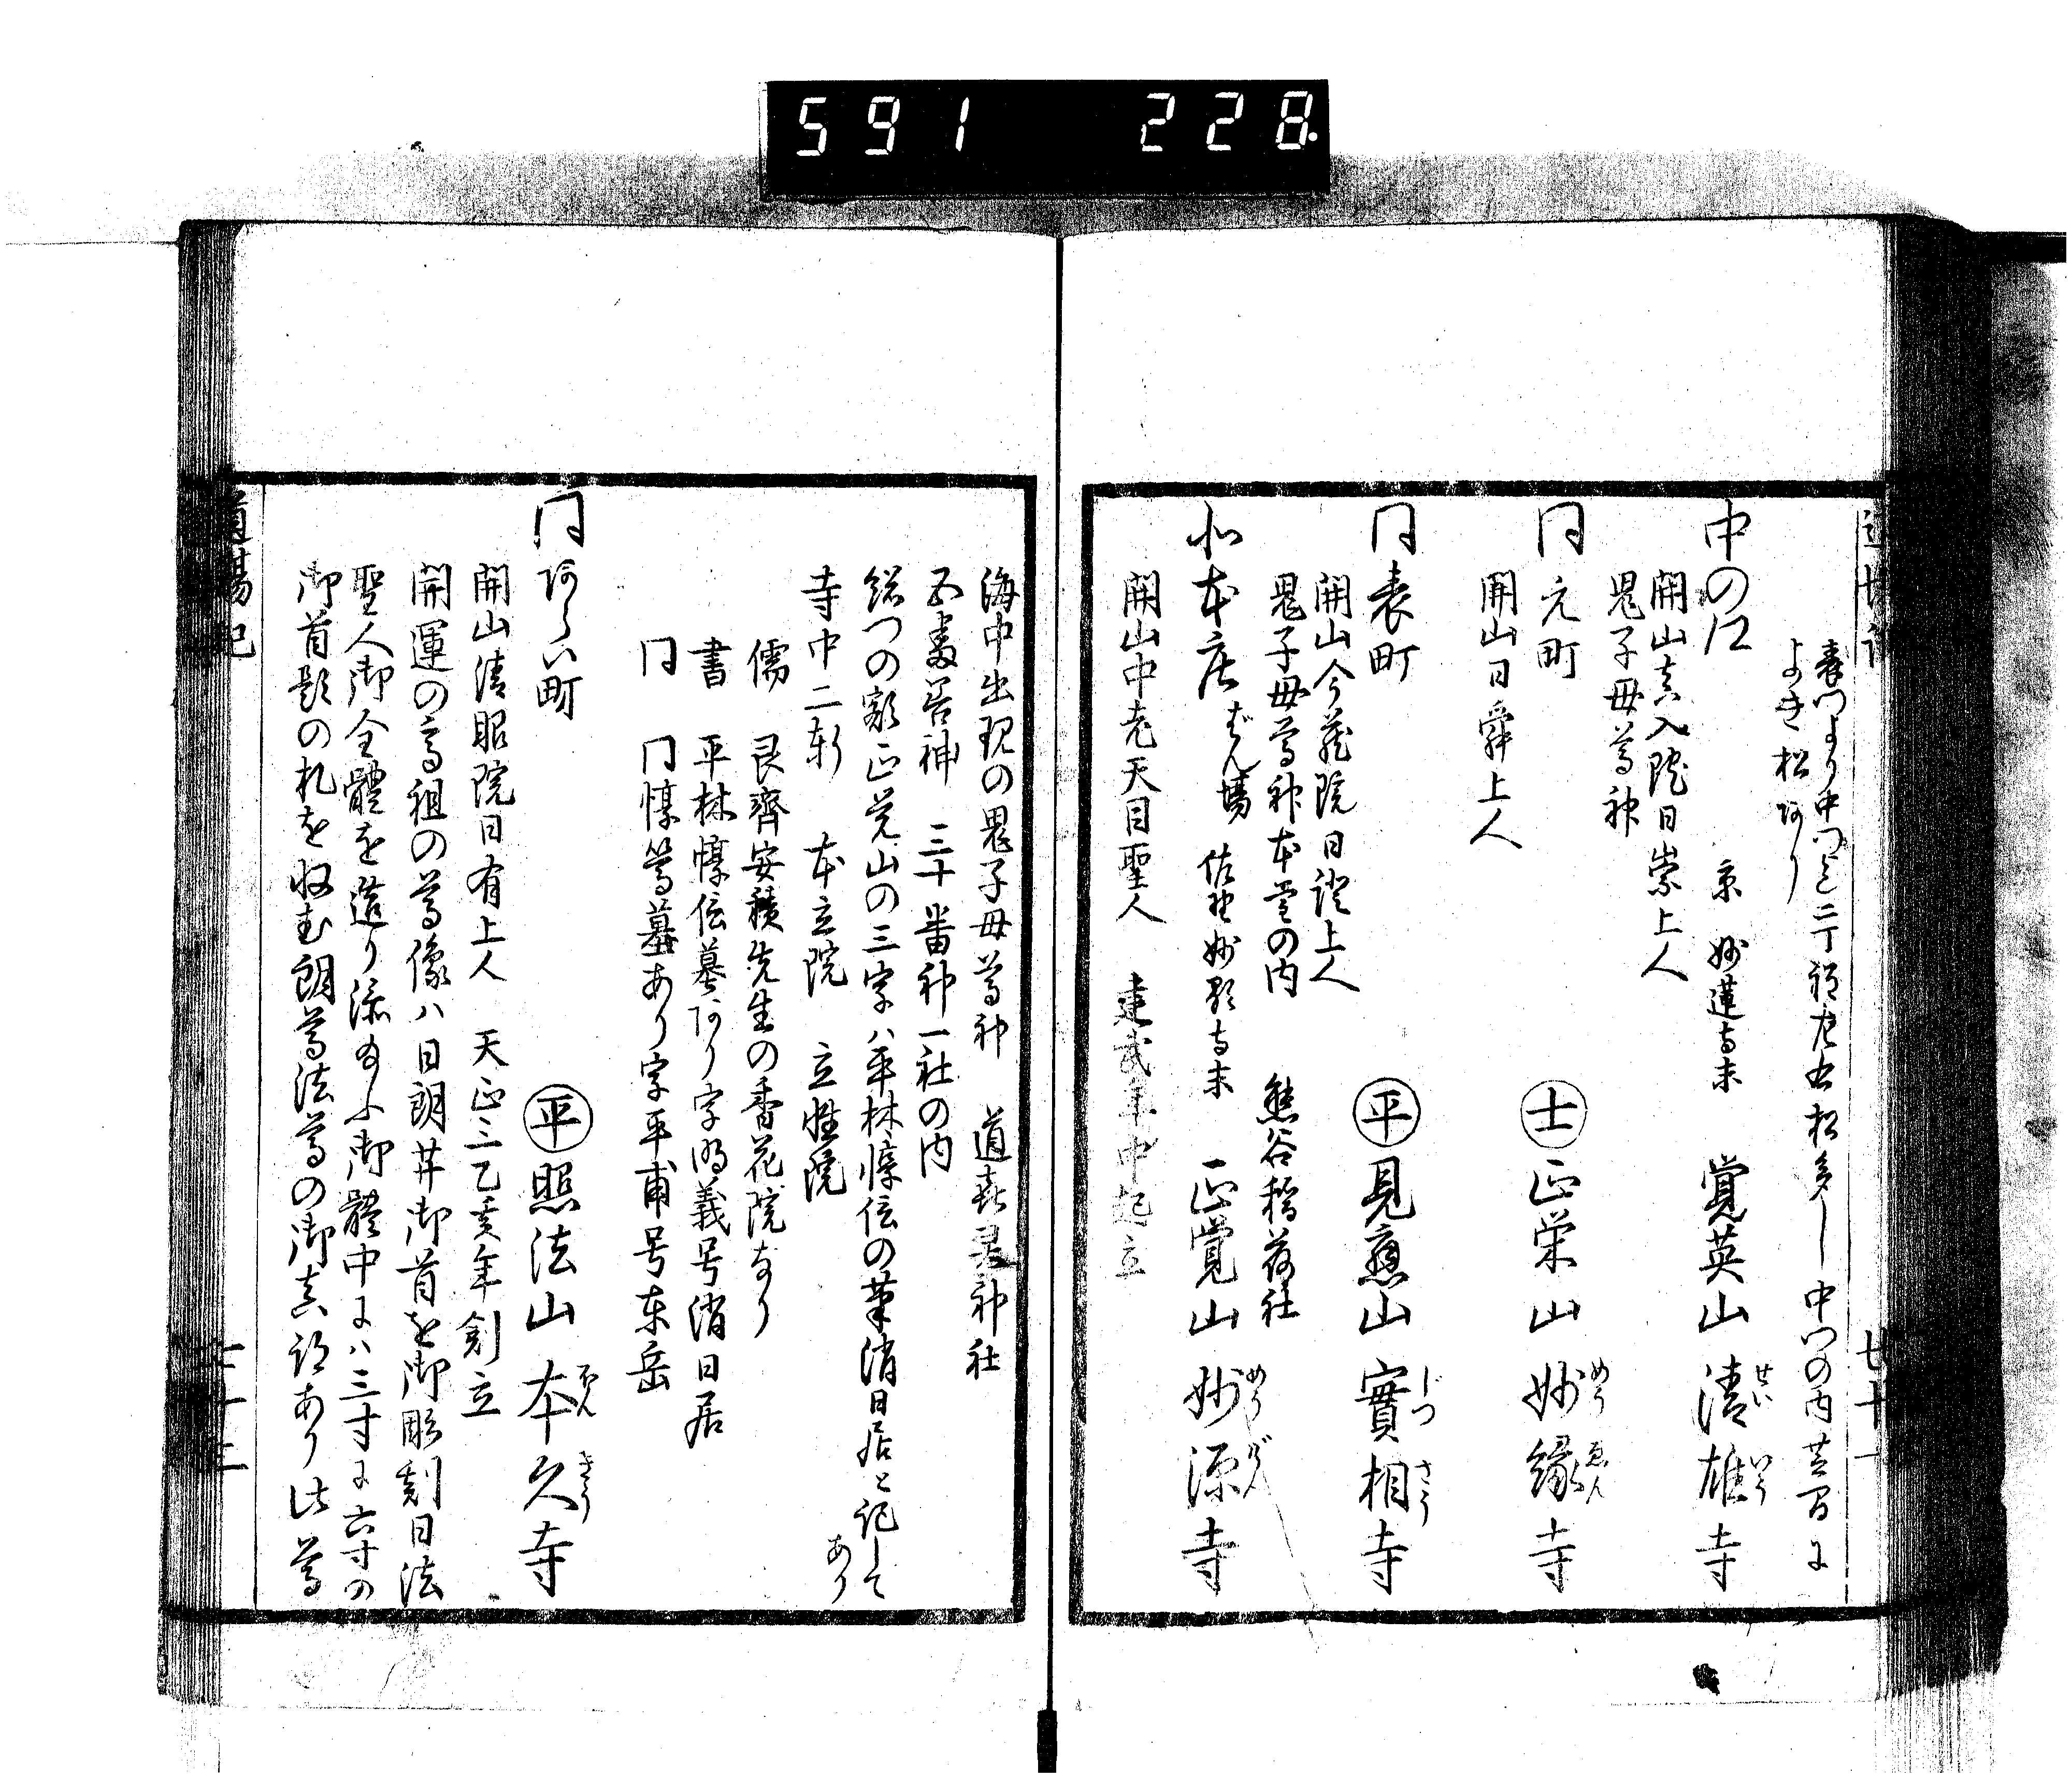 591 228
表門より中門迄二丁程左右松多し中門の内芸間に
よき松阿り
中の江 京 妙蓮寺末 覚英山 清雄寺
せい いう
開山真入院日崇上人
鬼子母尊神
同元町 士 正栄山 妙縁寺
めう ゑん
開山日舜上人
同表町 平 見應山 實相寺
じつ さう
開山今蔵院日證上人
鬼子母尊神本堂の内 熊谷稲荷社
北本庄ばん場 佐野妙顕寺末 正覚山 妙源寺
めう げん
開山中老天目聖人 建武年中起立
海中出現の鬼子母尊神 道喜霊神社
三十番神一社の内
総門の額正覚山の三字ハ平林惇信の筆消日居と記して
あり
寺中二軒 本立院 立性院
儒 艮齊安積先生の香花院なり
書 平林惇信墓阿り字明義号消日居
同 同惇篤墓あり字平甫号東岳
同阿らい町 平 照法山 本久寺
ほん きう
開山清昭院日有上人 天正三乙亥年創立
開運の高祖の尊像ハ日朗井御首を御彫刻日法
聖人御全體を造り添給ふ御體中にハ三寸に六寸の
御首題の札を収む朗尊法尊の御真訟あり此尊
道場記